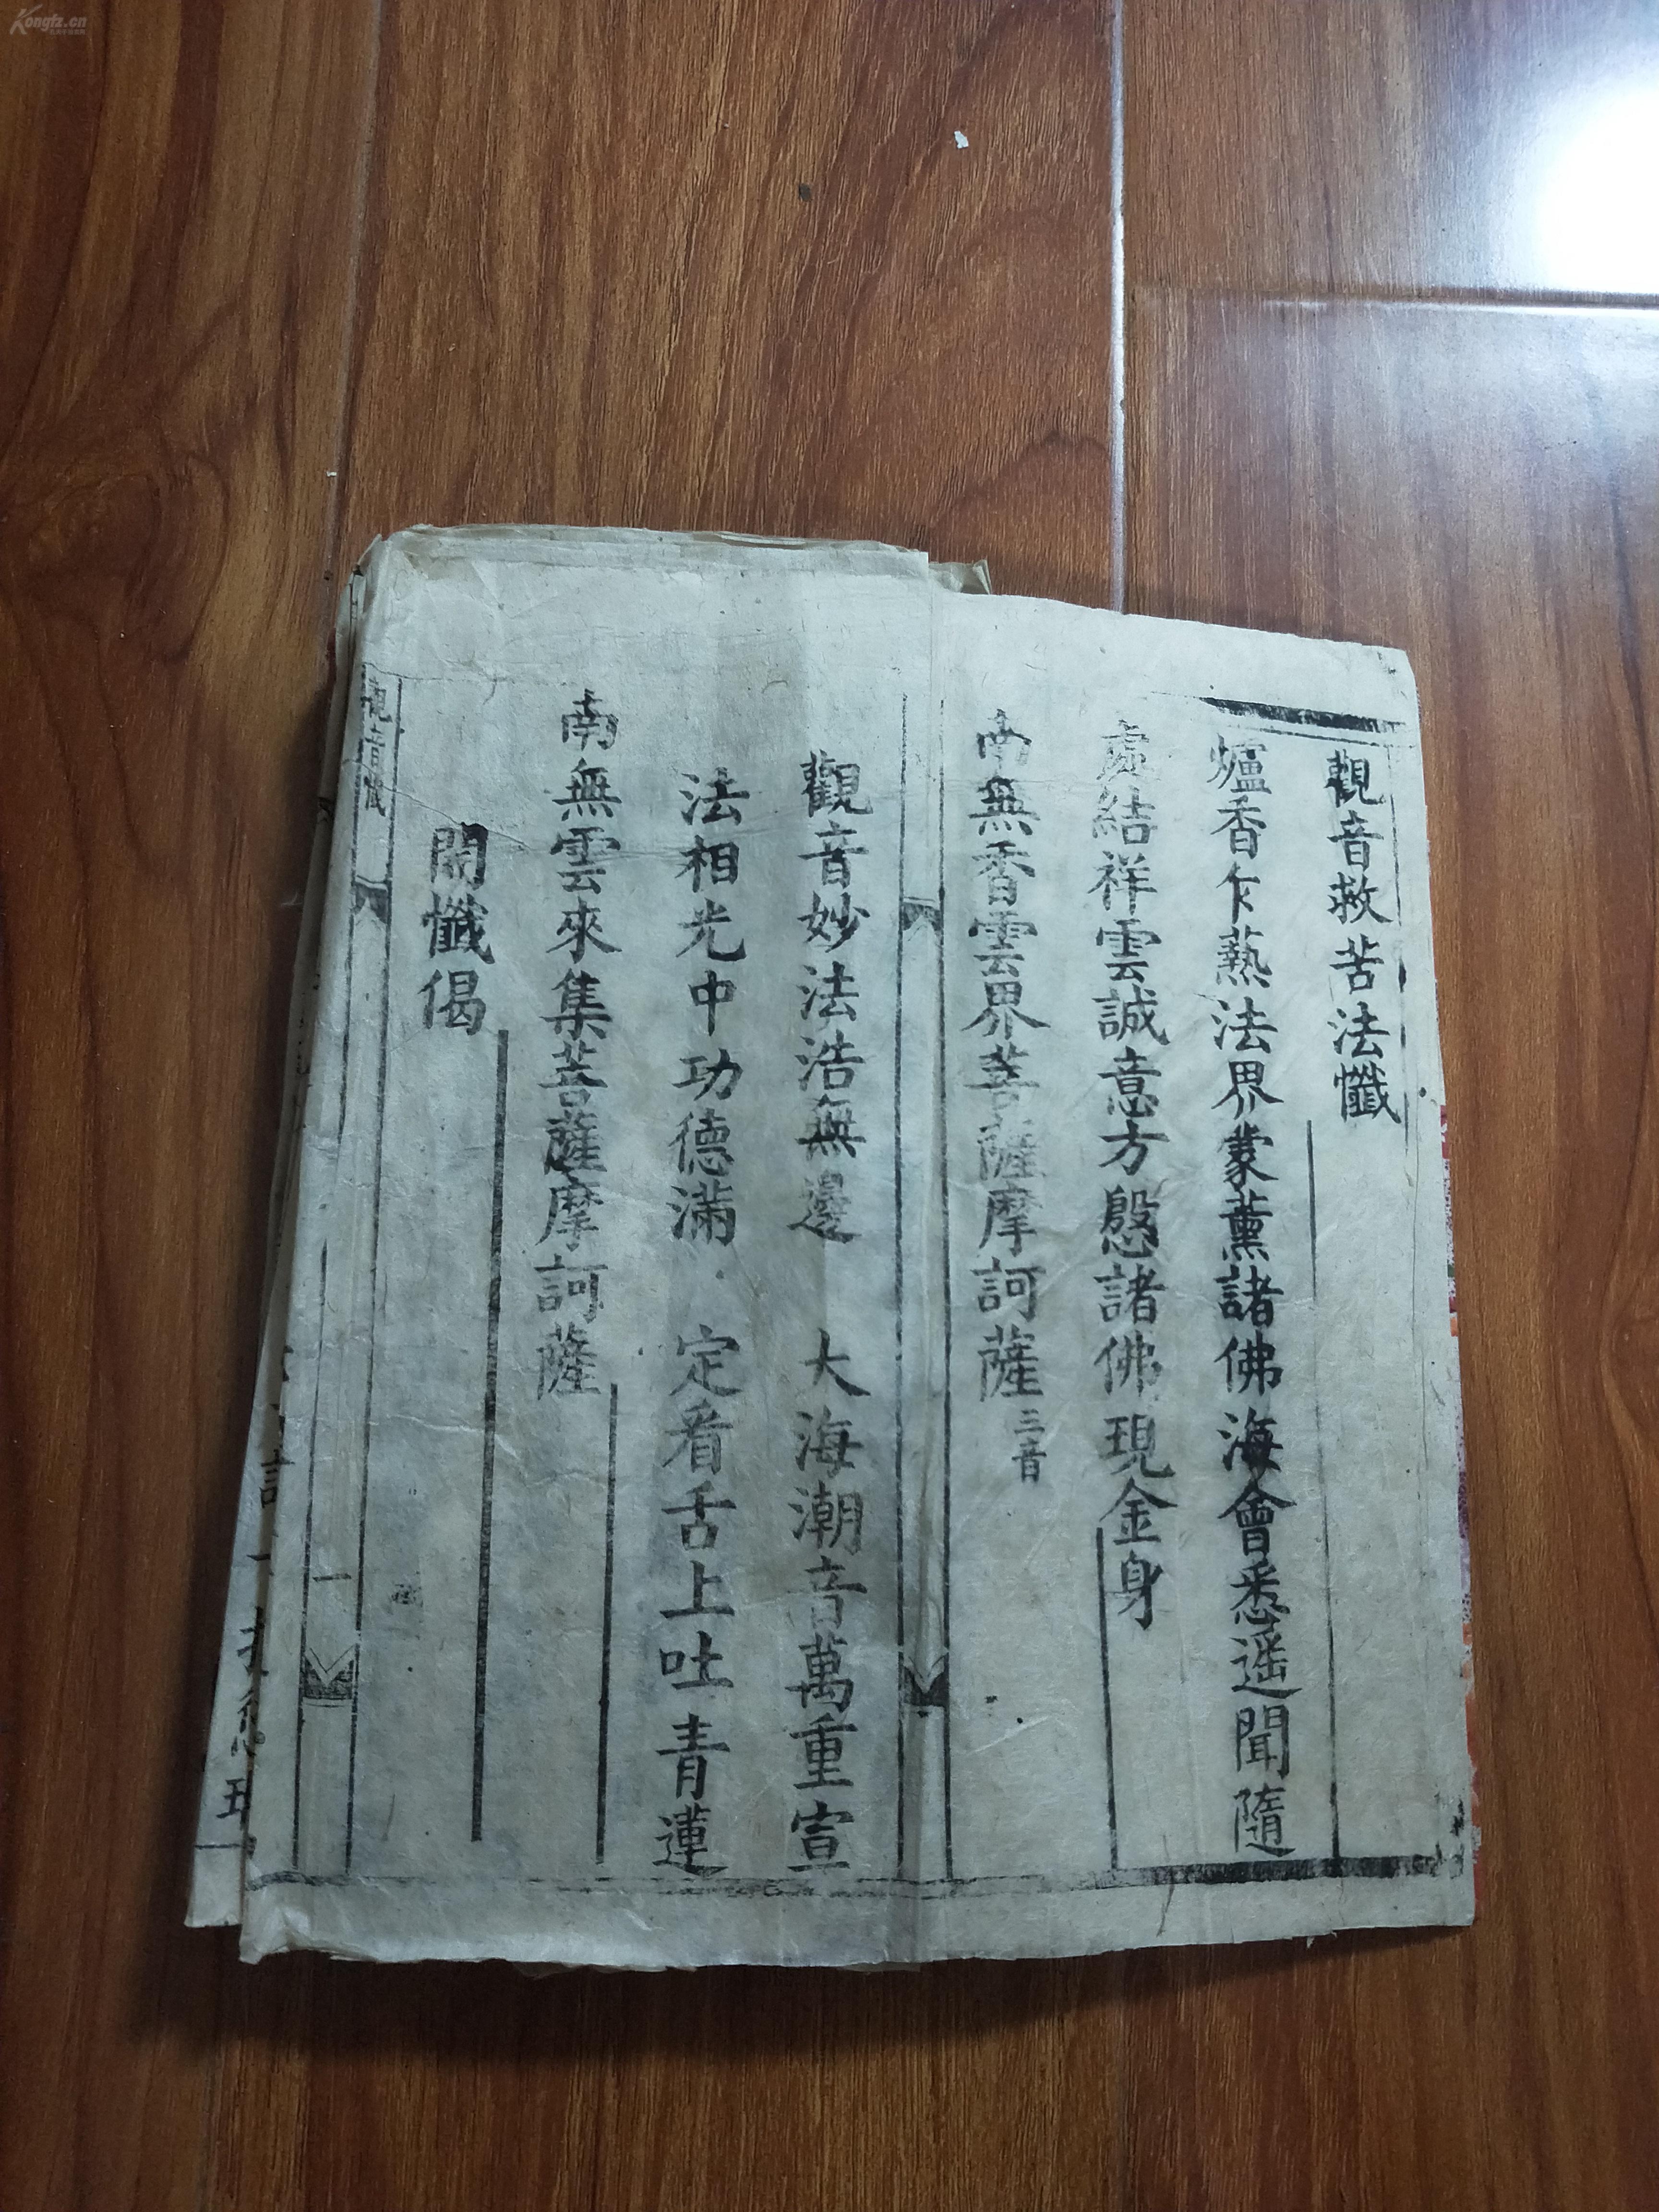 觀音救苦法懺
爐香乍爇法界蒙薰諸佛海會悉遥聞隨
處結祥雲誠意方慇諸佛現金身
南無香雲界菩薩摩訶薩三音
觀音妙法浩無邊 大海潮音萬重宣
法相光中功德滿 定看舌上吐青蓮
南無雲來集菩薩摩訶薩
開懺偈
觀音懺
一
Kongfz.cn